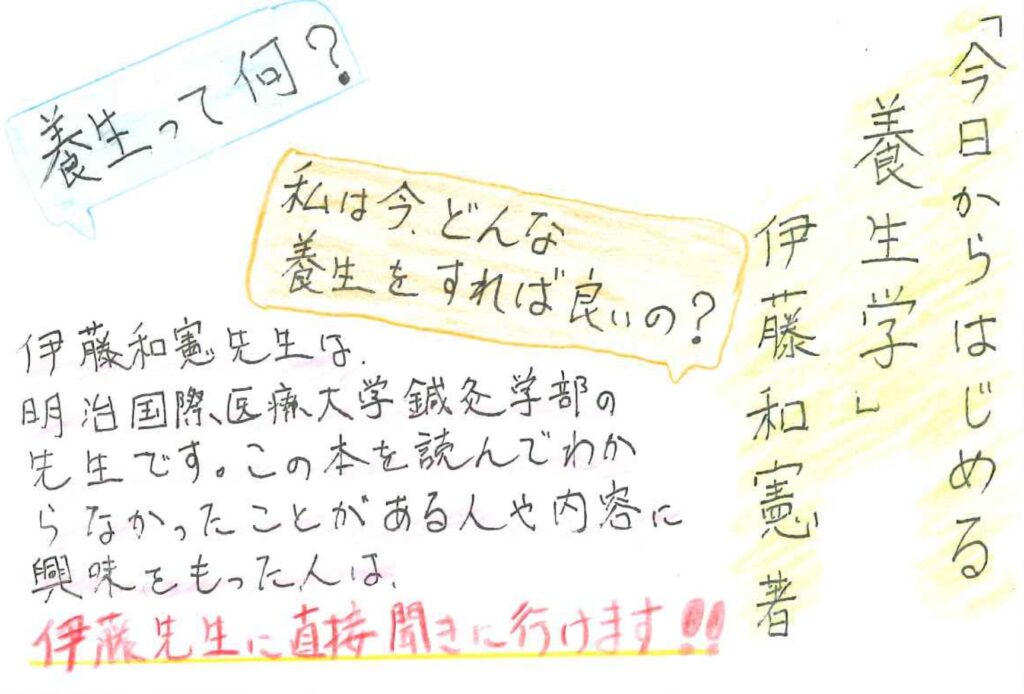 「今日からはじめる
養生学」
伊藤和憲 著
養生って何？
私は今、どんな
養生をすれば良いの？
伊藤和憲先生は、
明治国際医療大学鍼灸学部の
先生です。この本を読んでわか
らなかったことがある人や内容に
興味をもった人は、
伊藤先生に直接聞きに行けます!!